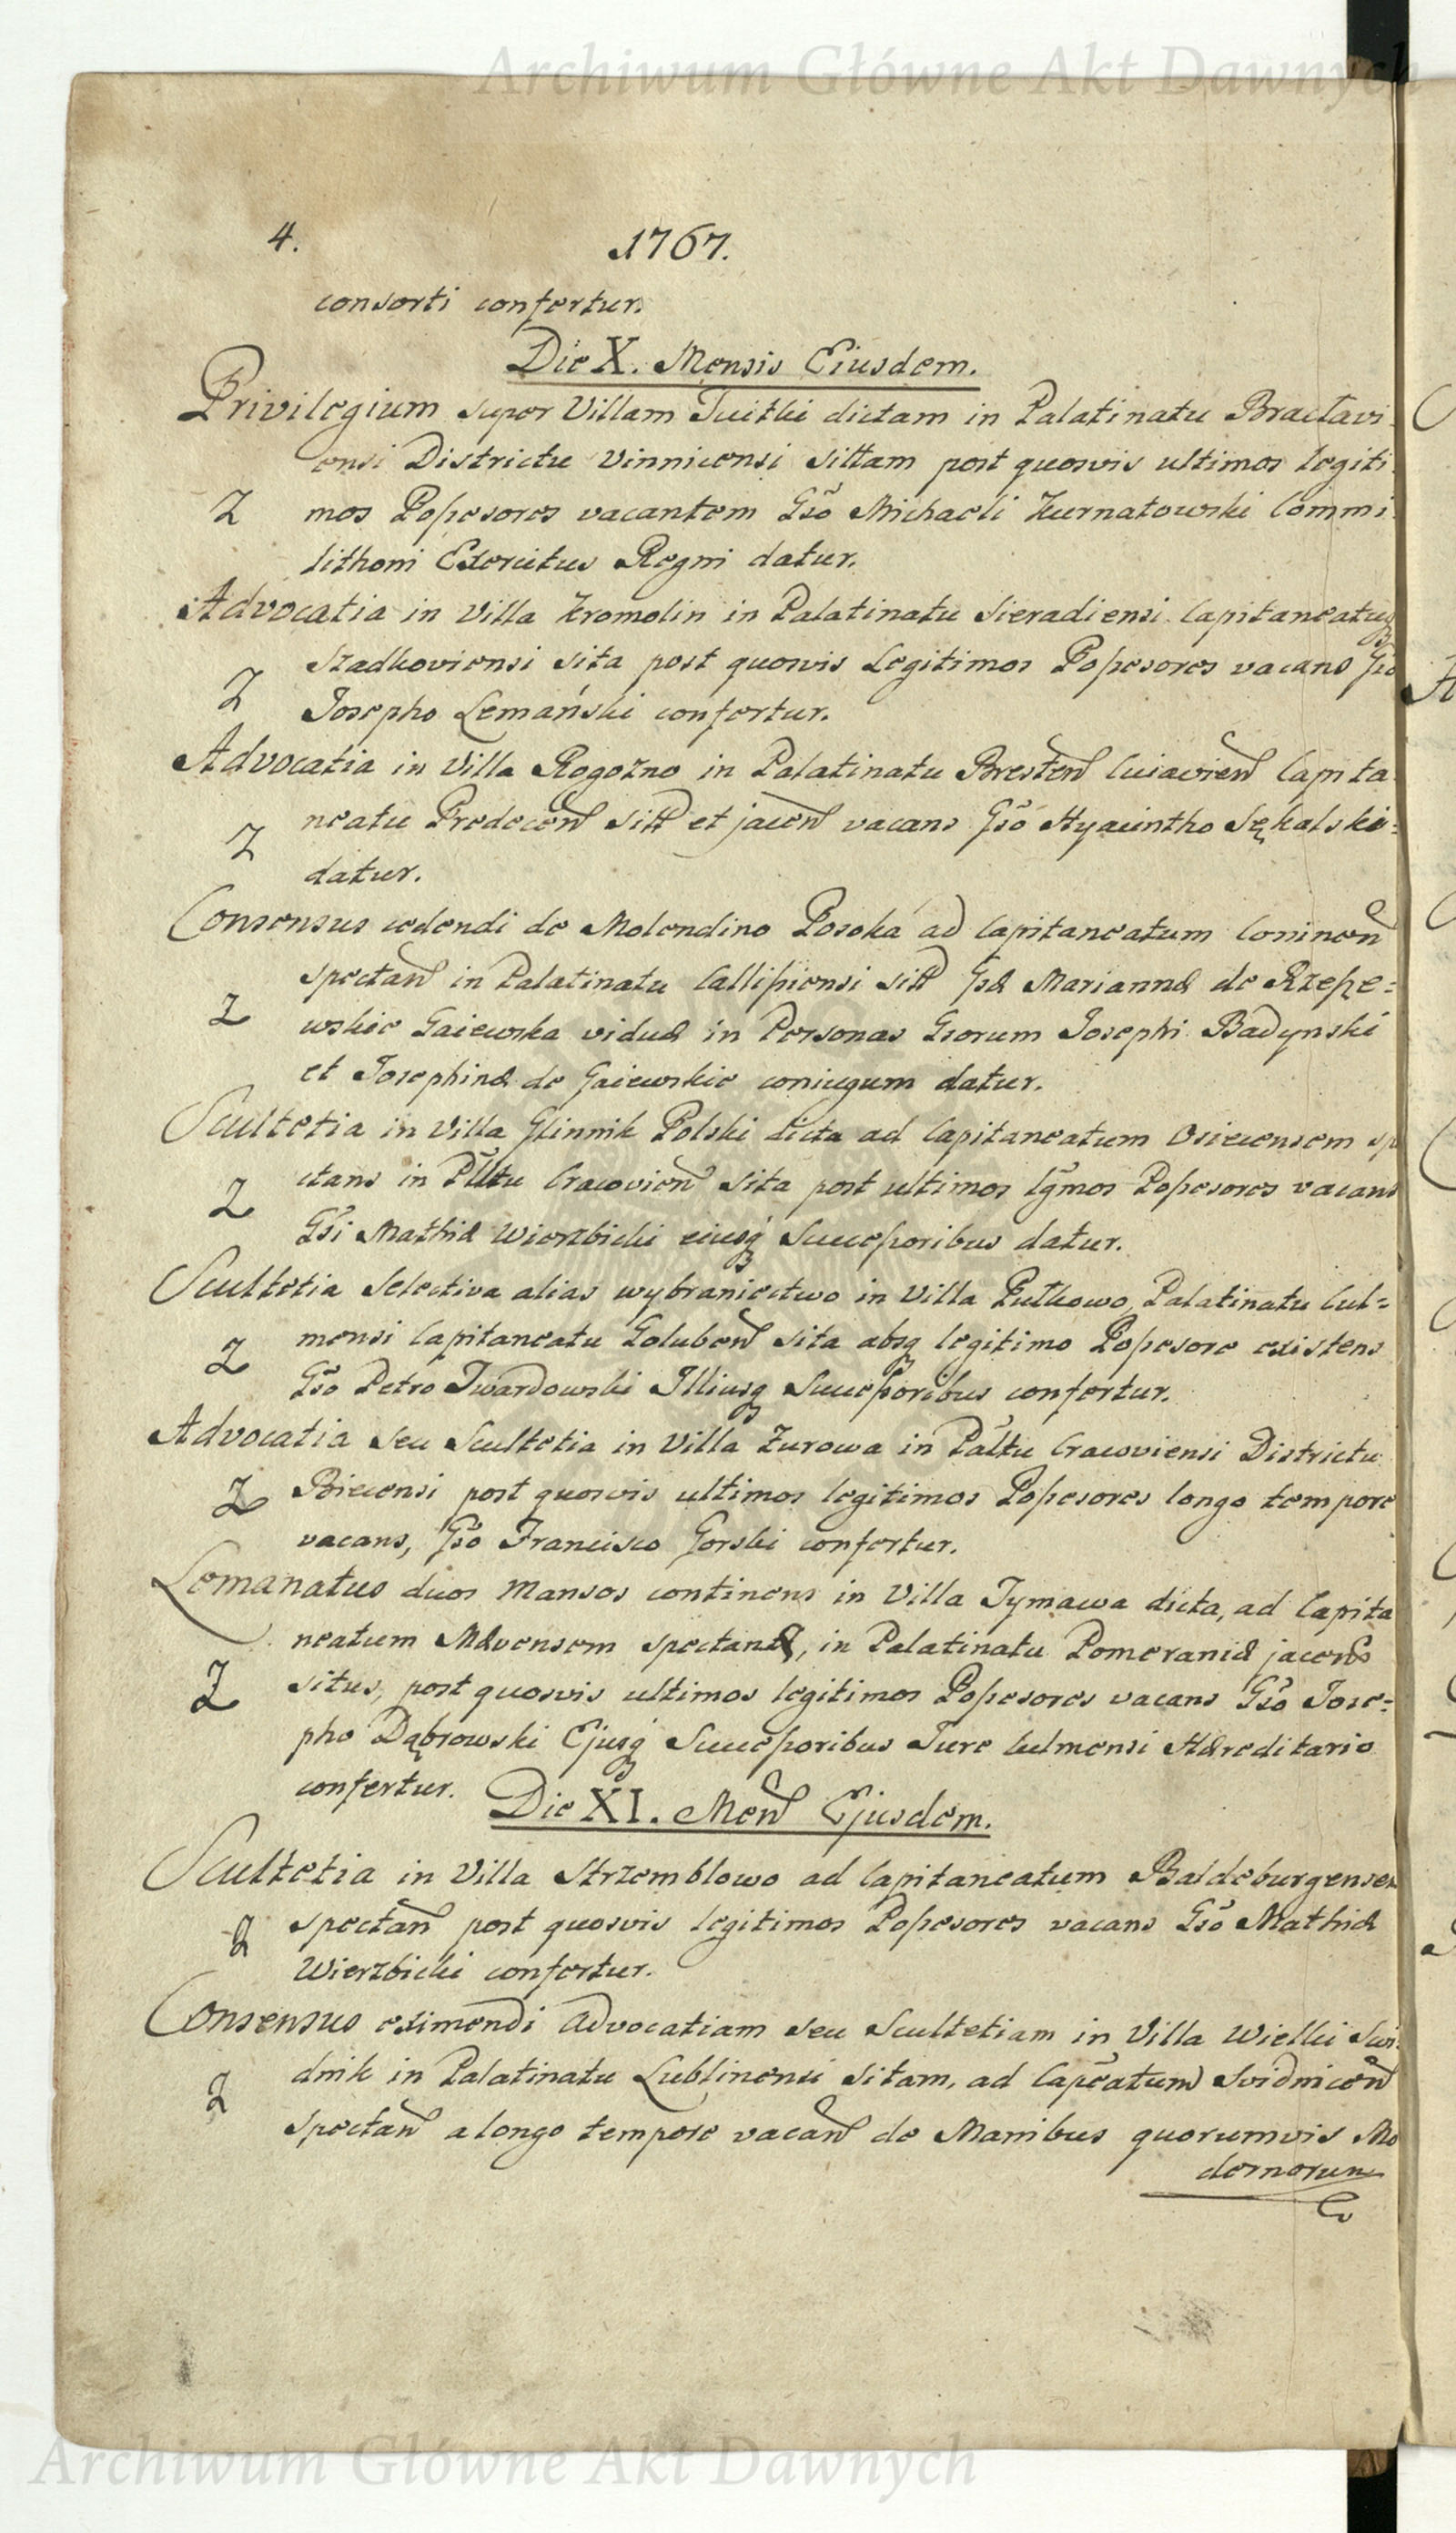 Archiwum Główne Akt Dawnych
4. 1767.
consorti confertur.
Die X. Mensis Eiusdem.
Privilegium super Villam Tuitki dictam in Palatinatu Bractavi
ensi Districtu Vinnicensi sittam post quosvis ultimos legiti
Z mos Possesores vacantem Gso Michaeli Zurnatowski Commi
lithoni Exercitus Regni datur.
Advocatia in Villa Kromolin in Palatinatu Sieradiensi Capitaneatuq
Szadkoviensi sita post quosvis Legitimos Possesores vacans Gso
Z Josepho Lemański confertur.
Advocatia in Villa Rogozno in Palatinatu Bresten Cuiavien Capita
neatu Predecen sitt et jacen vacans Gso Hyacintho Sękalski
Z datur.
Consensus cedendi de Molendino Posoka ad Capitaneatum Coninen
spectan in Palatinatu Callissiensi sitt Gsæ Mariannæ de Rzepe=
Z wskie Gaiewska viduæ in Personas Gsorum Josephi Badynski
et Josephinæ de Gaiewskie coniugum datur.
Scultetia in Villa Glinnik Polski dicta ad Capitaneatum Osiecensem spe
ctans in Pltu Cracovien sita post ultimos lgmos Possesores vacans
Z Gsi Mathiæ Wierzbicki eiusq Successoribus datur.
Scultetia Selectiva alias wybraniectwo in Villa Pułkowo, Palatinatu Cul=
mensi Capitaneatu Goluben sita absq legitimo Possesore existens
Z Gso Petro Twardowski Illiusq Successoribus confertur.
Advocatia seu Scultetia in Villa Zurowa in Paltu Cracoviensi Districtu
Z Biecensi post quosvis ultimos legitimos Possesores longo tempore
vacans, Gso Francisco Gorski confertur.
Lemanatus duos Mansos continens in Villa Tymawa dicta, ad Capita
neatum Mævensem spectans, in Palatinatu Pomeraniæ jacens
Z situs, post quosvis ultimos legitimos Possesores vacans Gso Jose=
pho Dąbrowski Ejusq Successoribus Jure Culmensi Hæreditario
confertur.
Die XI. Men Ejusdem.
Scultetia in Villa Strzemblowo ad Capitaneatum Baldeburgensem
Z spectan post quosvis legitimos Possesores vacans Gso Mathiæ
Wierzbicki confertur.
Consensus eximendi Advocatiam seu Scultetiam in Villa Wielki Swi
Z dnik in Palatinatu Lublinensi sitam, ad Capeatum Svidnicen
spectan a longo tempore vacan de Manibus quorumvis Mo
dernorum
Archiwum Główne Akt Dawnych